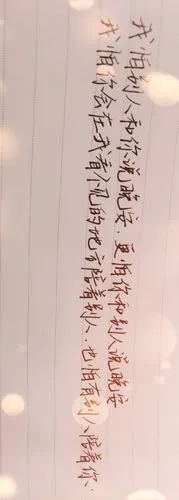 我怕别人和你说晚安.更怕你和别人说晚安
我怕你会在我看不见的地方陪着别人.也怕有别人陪着你.